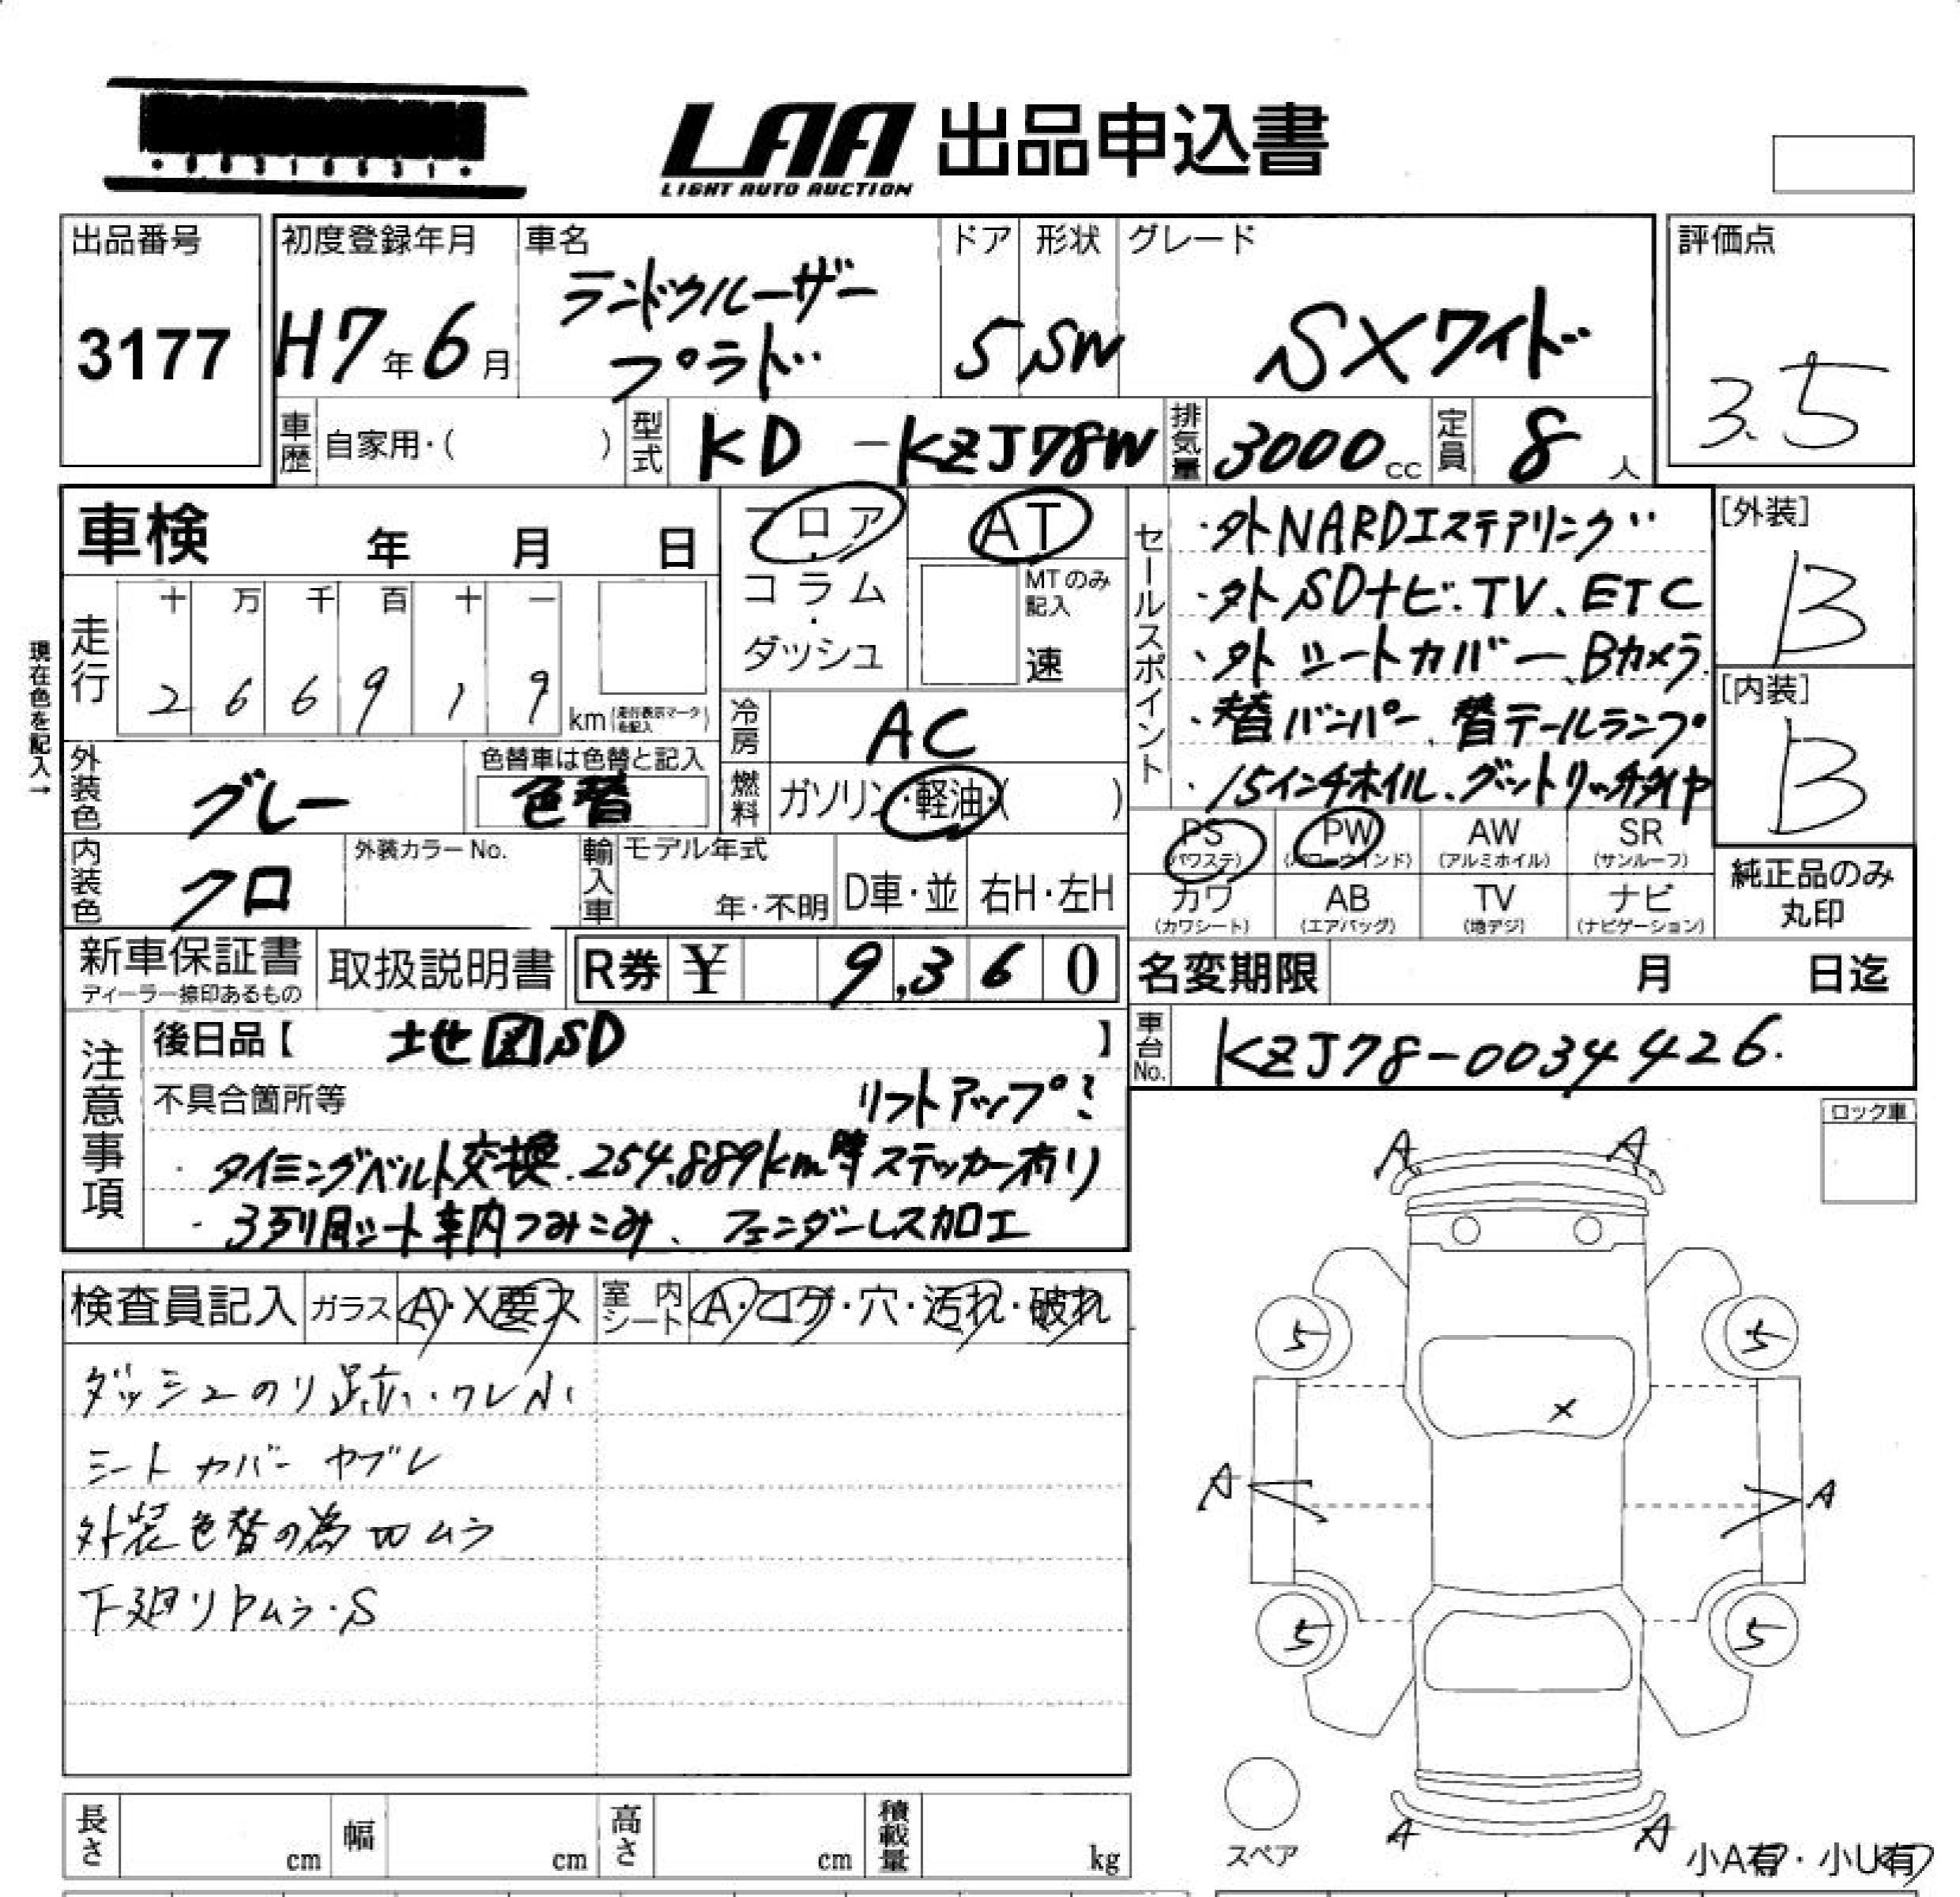 LAA 出品申込書
LIGHT AUTO AUCTION
出品番号
3177
初度登録年月
H7年6月
車名
ランドクルーザー
プラド
ドア
5
形状
SW
グレード
SXワイド
評価点
3.5
車歴 自家用・( )
型式 KD-KZJ78W
排気量 3000cc
定員 8人
車検 年 月 日
フロア・コラム・ダッシュ
AT
MTのみ記入
速
現在色を記入→
走行
十 万 千 百 十 一
2 6 6 9 1 9 km(走行表示マークを記入)
冷房 AC
燃料 ガソリン・軽油・( )
外装色 グレー
色替車は色替と記入
色替
内装色 クロ
外装カラーNo.
輸入車 モデル年式
年・不明 D車・並 右H・左H
セールスポイント
・外NARDIステアリング
・外SDナビ.TV、ETC
・外シートカバー、Bカメラ
・替バンパー、替テールランプ
・15インチホイル、グットリッチタイヤ
[外装]
B
[内装]
B
PS(パワステ) PW(パワーウインド) AW(アルミホイル) SR(サンルーフ)
カワ(カワシート) AB(エアバッグ) TV(地デジ) ナビ(ナビゲーション)
純正品のみ丸印
新車保証書
ディーラー捺印あるもの
取扱説明書
R券 ¥ 9,360
名変期限 月 日迄
車台No. KZJ78-0034426.
注意事項
後日品【 地図SD 】
不具合箇所等 リフトアップ
・タイミングベルト交換.254,889km時ステッカー有り
・3列目シート車内つみこみ、フェンダーレス加工
ロック車
検査員記入 ガラス A・X要ス 室内シート A・コゲ・穴・汚れ・破れ
ダッシュのり跡・ワレ小
シートカバーヤブレ
外装色替の為凹ムラ
下廻りPムラ・S
A A
5 5
X
A A
5 5
A A
スペア
小A有・小U有
長さ cm 幅 cm 高さ cm 積載量 kg